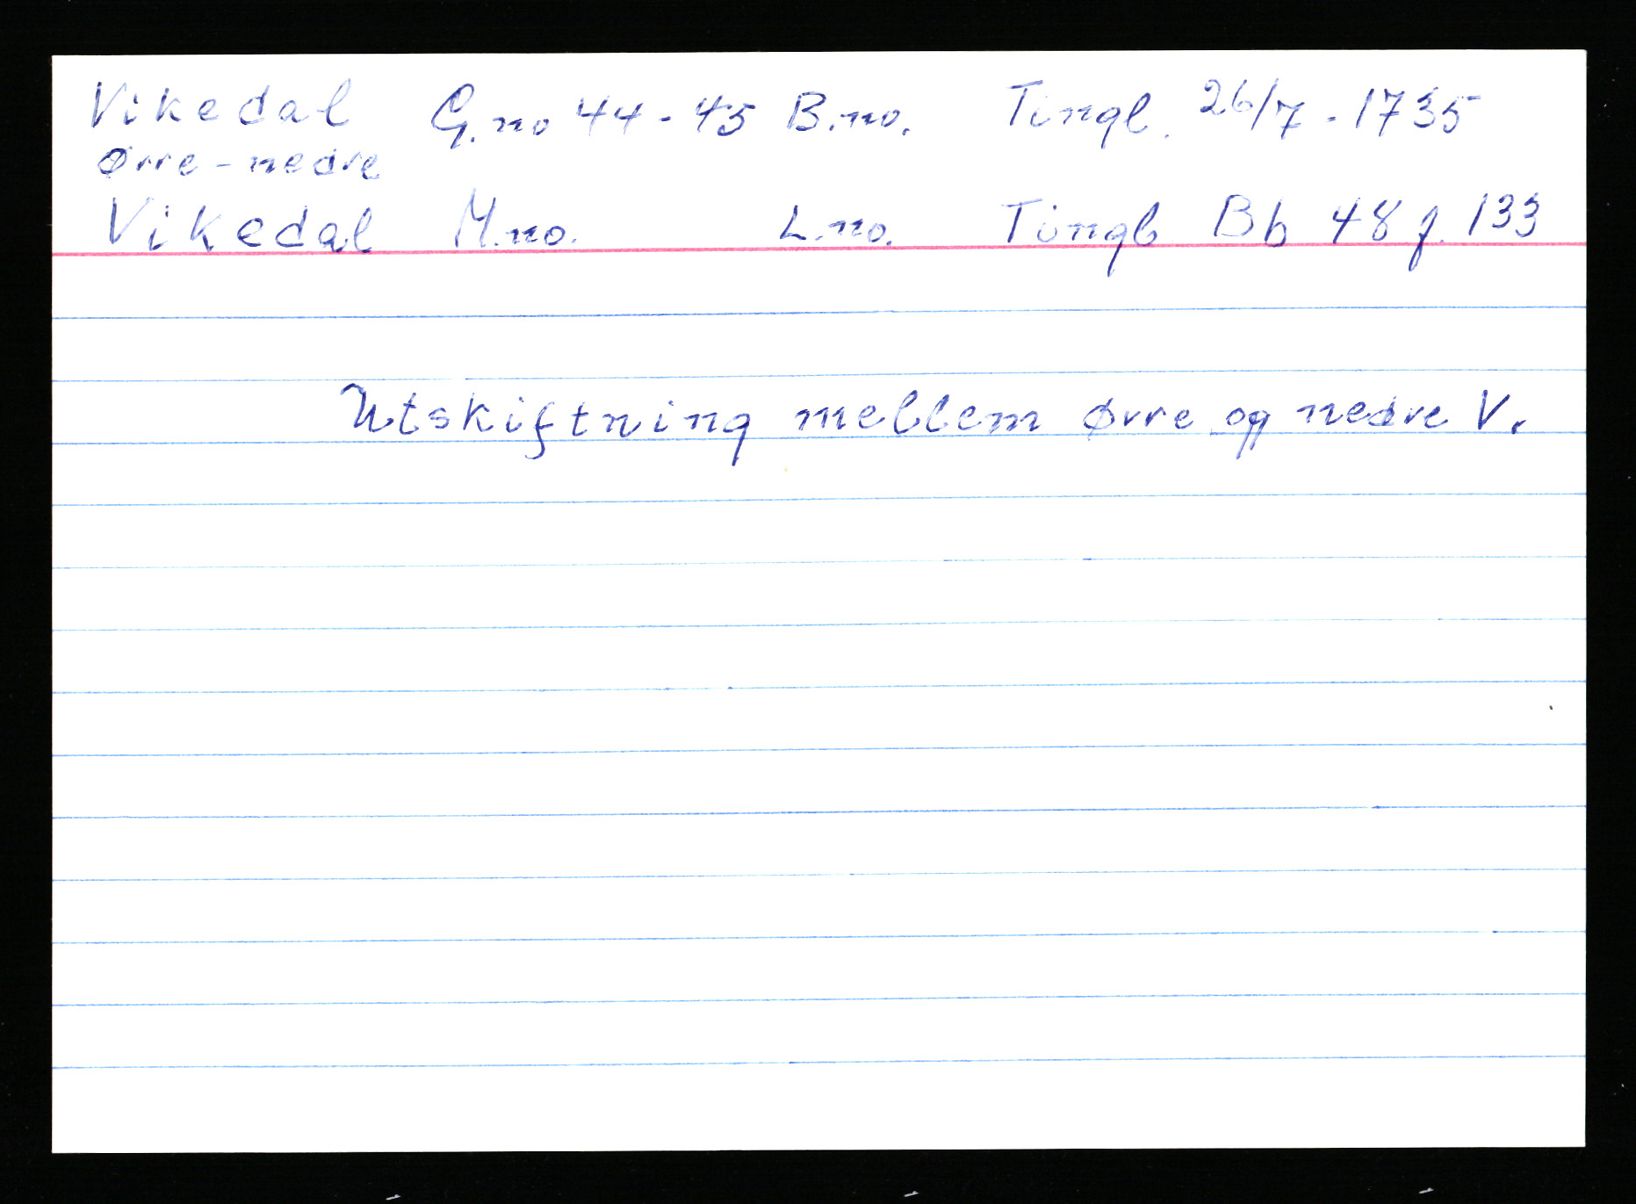 Vikedal G.no 44-45 B.no. Tingl. 26/7-1735
Øvre-nedre
Vikedal M.no. L.no. Tingb Bb 48 f. 133
Utskiftning mellem øvre og nedre V.